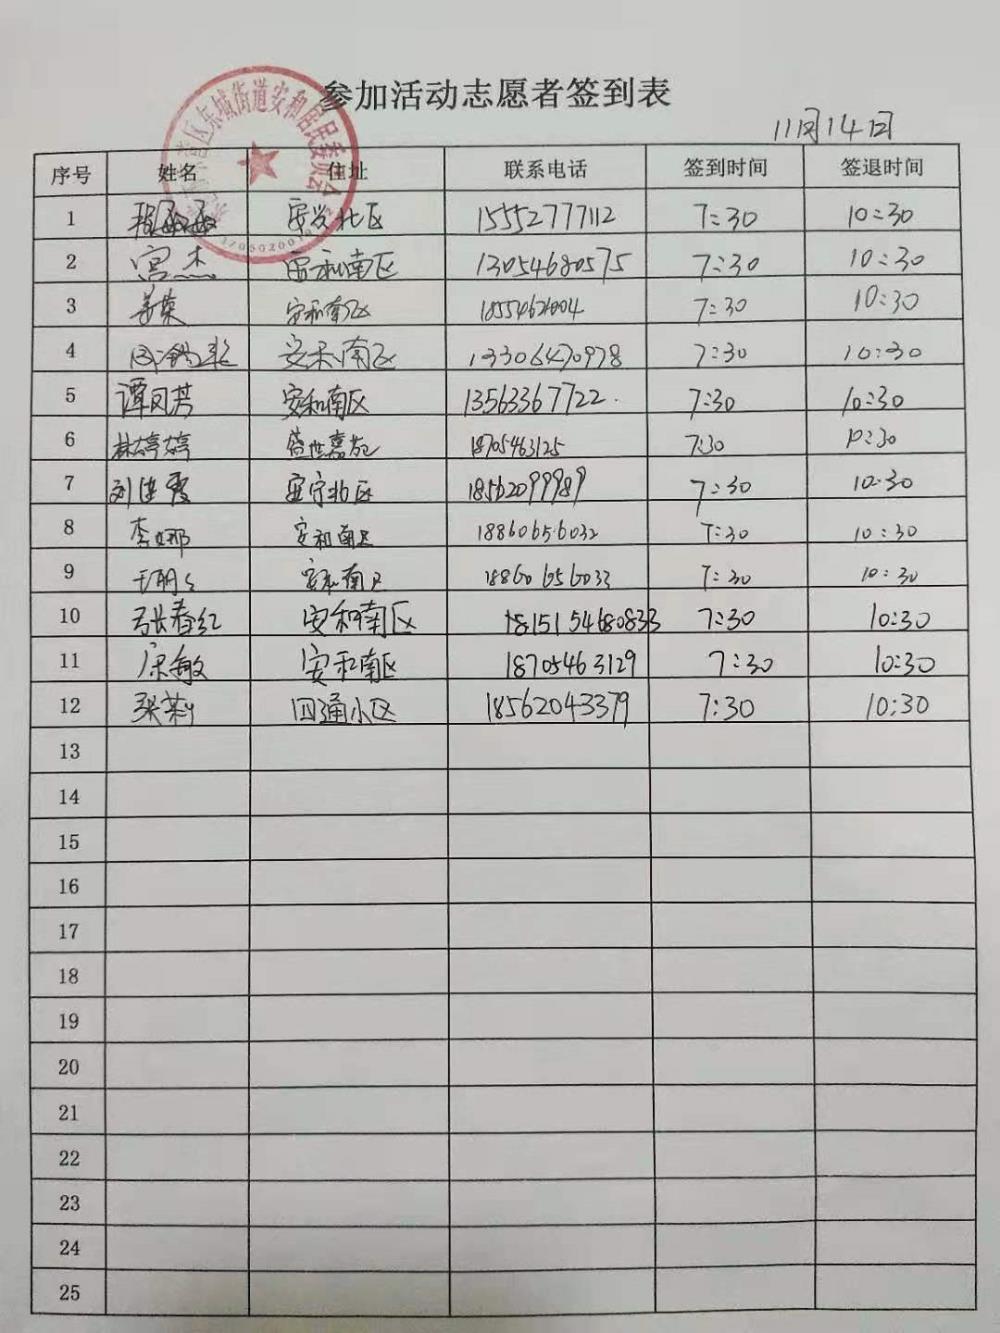 参加活动志愿者签到表
11月14日
东城街道安和居民委员会
序号 姓名 住址 联系电话 签到时间 签退时间
1 北区 15552777112 7:30 10:30
2 宫杰 安和南区 13054680575 7:30 10:30
3 姜荣 安和南区 7:30 10:30
4 安和南区 13306470978 7:30 10:30
5 谭凤芳 安和南区 13563367722. 7:30 10:30
6 林婷婷 盛世嘉苑 18705463125 7:30 10:30
7 刘 霞 安宁北区 18562099989 7:30 10:30
8 李娜 安和南区 18860656032 7:30 10:30
9 安和南区 18860656033 7:30 10:30
10 张春红 安和南区 7:30 10:30
11 宋敏 安和南区 18705463129 7:30 10:30
12 张莉 四通小区 18562043379 7:30 10:30
13
14
15
16
17
18
19
20
21
22
23
24
25